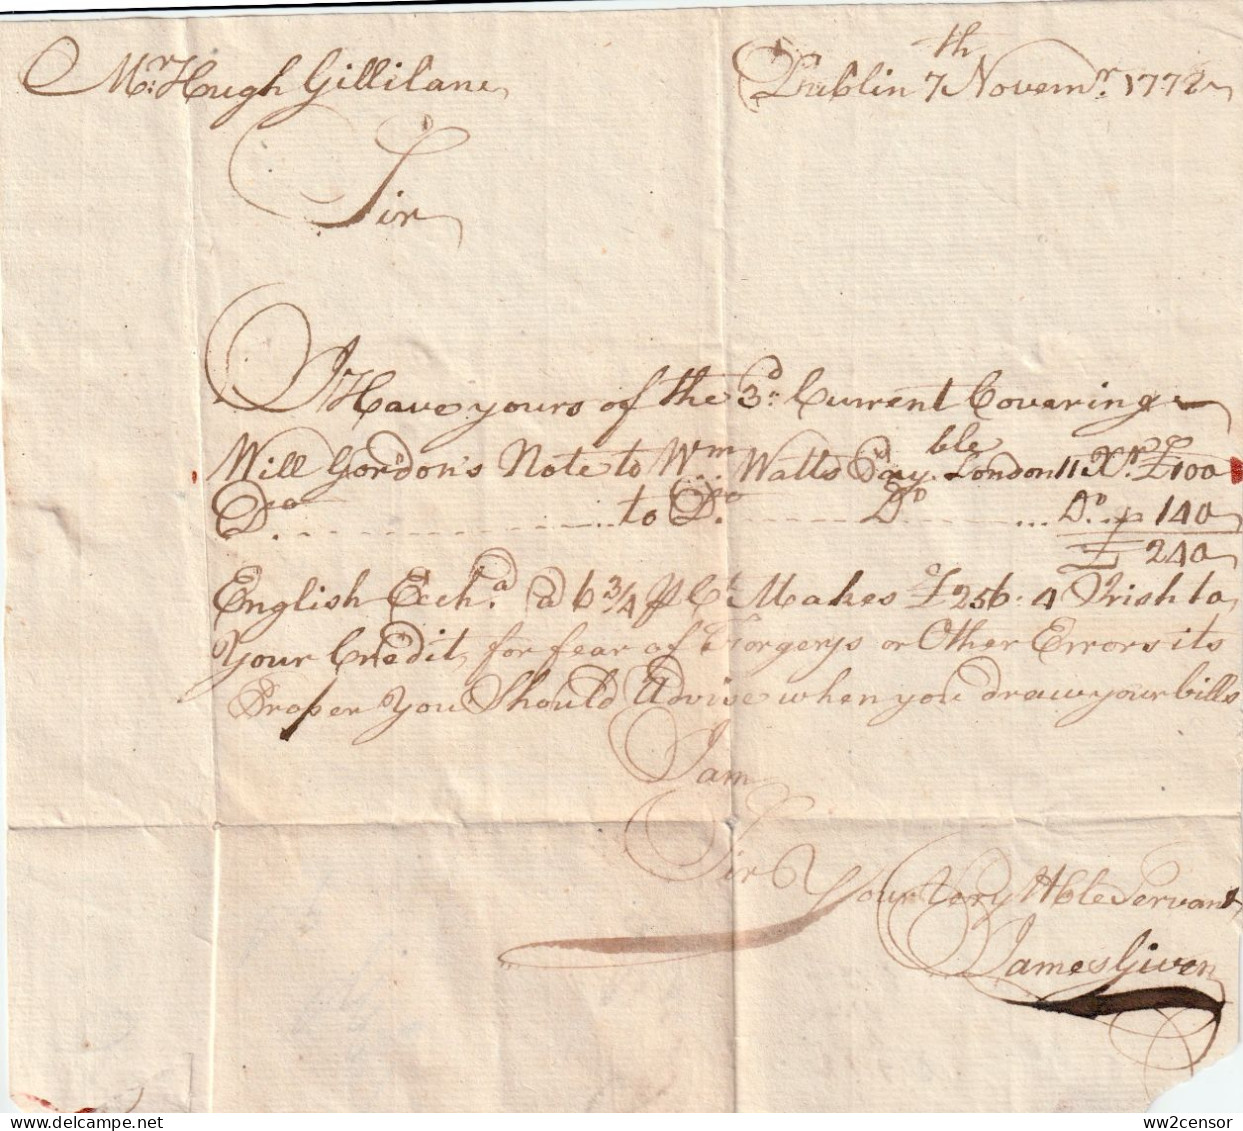 Mr. Hugh Gillilane Dublin 7th Novemr. 1772
Sir
I Have yours of the 3d. Current Covering
Will Gordon's Note to Wm. Watts Payble London 11 Xr. £100
Do. to Do. Do Do. 140
£ 240
English Exch.a a 6 3/4 P Ct. Makes £256.4 Irish to
Your Credit, for fear of Forgerys or Other Errors its
Proper You Should Advise when you draw your bills
I am
Sir Your Very Hble Servant
James Given
ww2censor